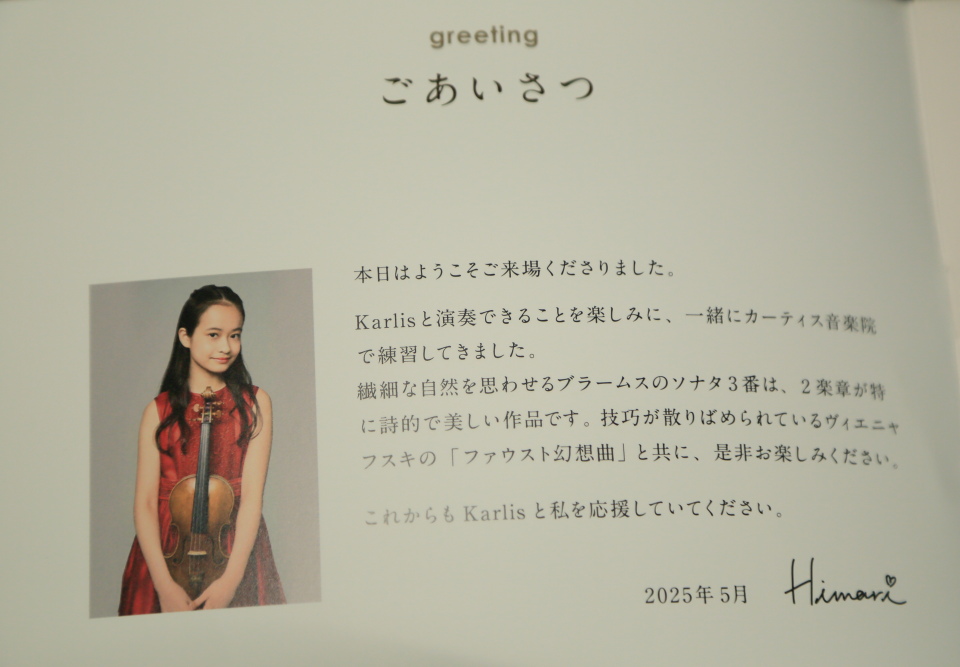 greeting
ごあいさつ
本日はようこそご来場くださりました。
Karlisと演奏できることを楽しみに、一緒にカーティス音楽院
で練習してきました。
繊細な自然を思わせるブラームスのソナタ3番は、2楽章が特
に詩的で美しい作品です。技巧が散りばめられているヴィエニャ
フスキの「ファウスト幻想曲」と共に、是非お楽しみください。
これからもKarlisと私を応援していてください。
2025年5月
Himari